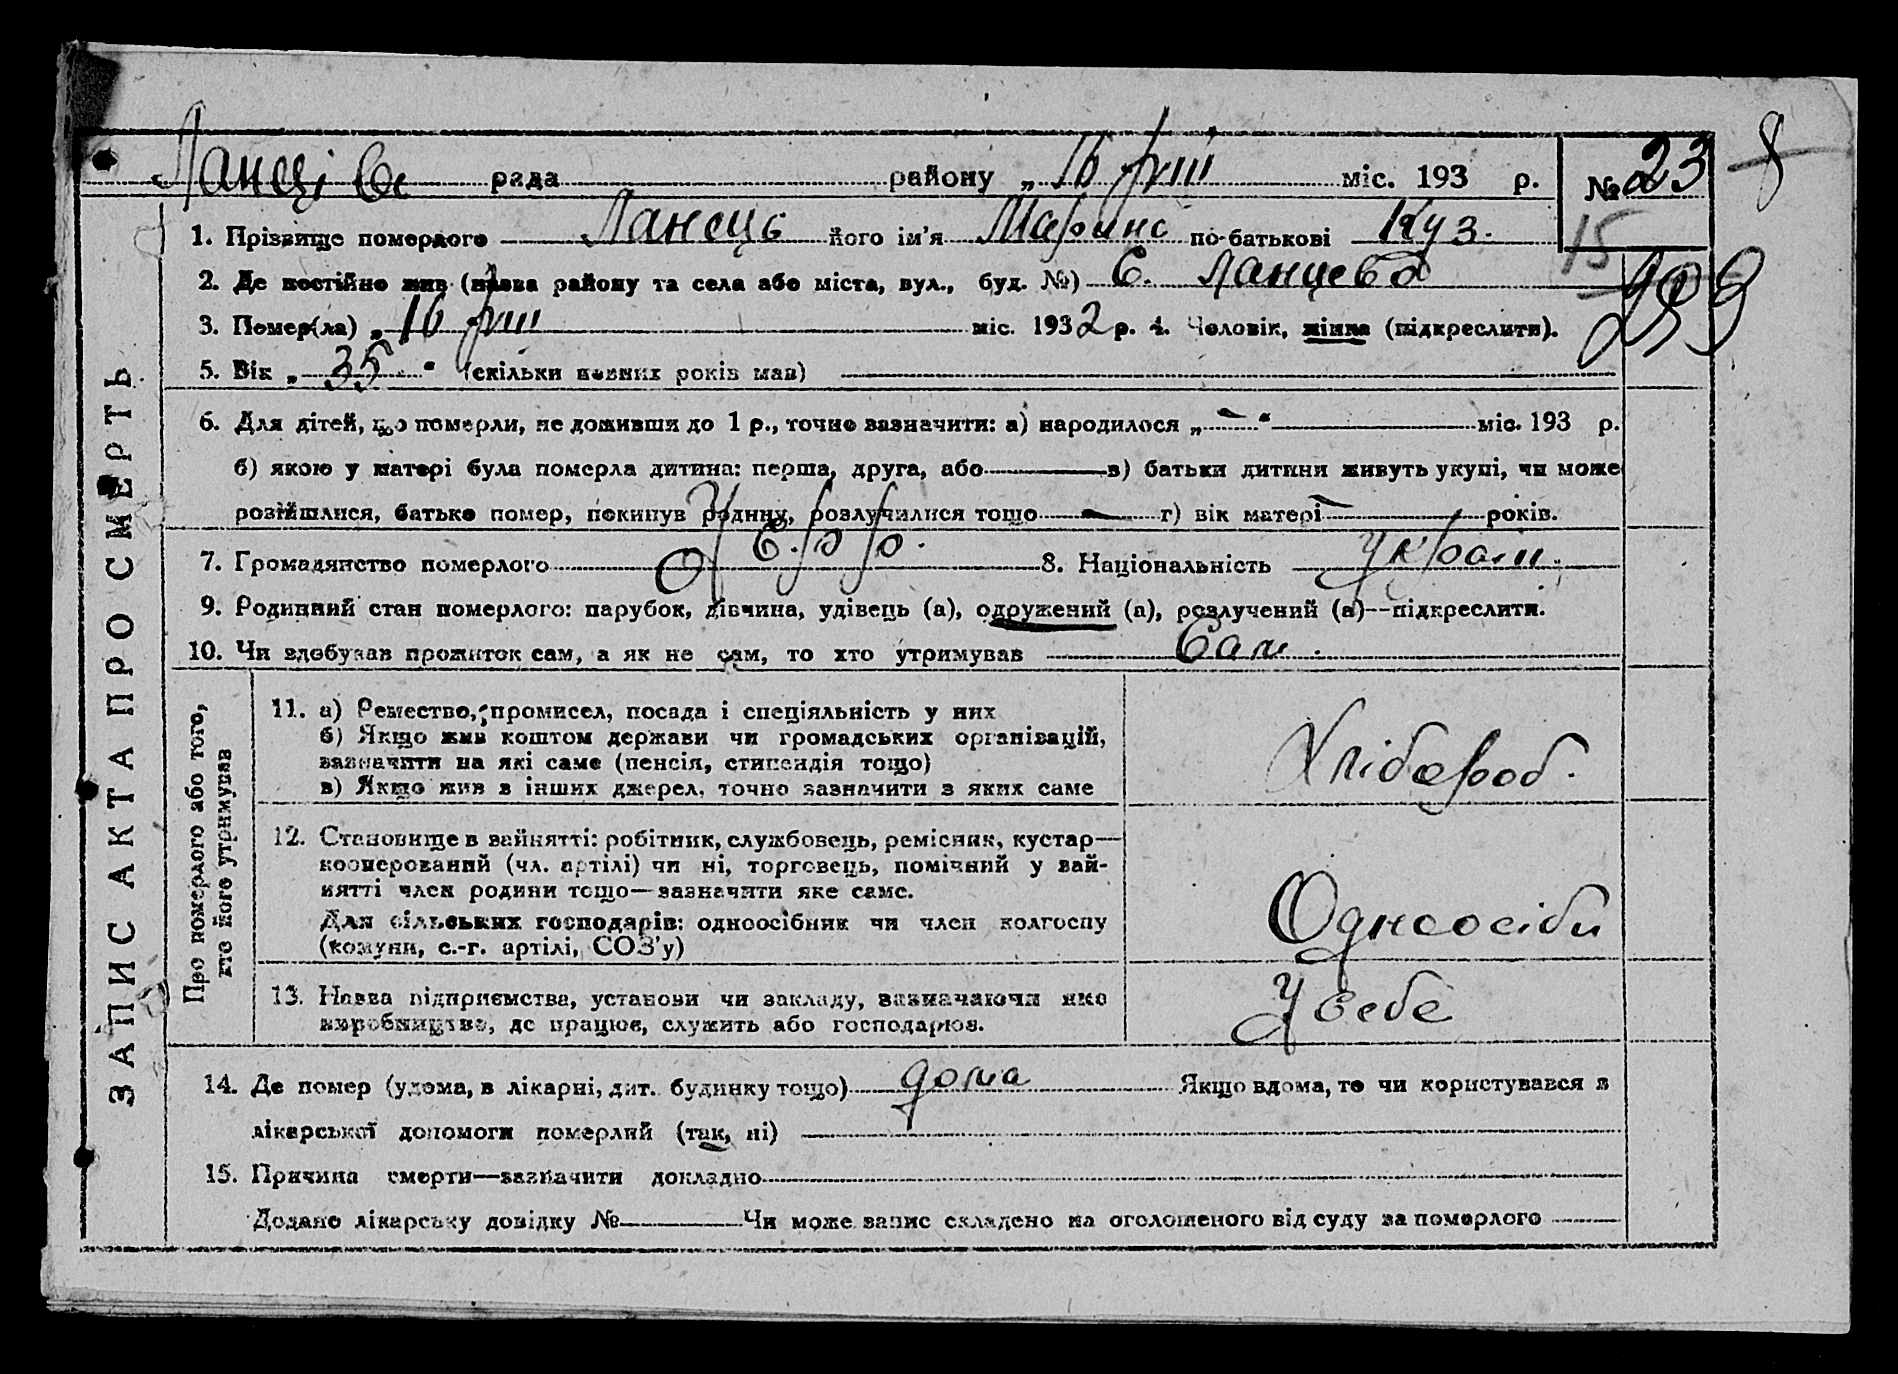 рада району „16 /VIII міс. 193 р. № 23
8
15
1. Прізвище померлого Ланець його ім'я Марина по-батькові Куз.
2. Де постійно жив (назва району та села або міста, вул., буд. №) с. Ланцева
3. Помер(ла) „16 /VIII міс. 1932 р. 4. Чоловік, жінка (підкреслити).
5. Вік „35" (скільки повних років мав)
6. Для дітей, що померли, не доживши до 1 р., точно зазначити: а) народилося „—" міс. 193 р.
б) якою у матері була померла дитина: перша, друга, або в) батьки дитини живуть укупі, чи може
розійшлися, батько помер, покинув родину, розлучилися тощо — г) вік матері — років.
7. Громадянство померлого УСРР. 8. Національність Україн.
9. Родинний стан померлого: парубок, дівчина, удівець (а), одружений (а), розлучений (а)—підкреслити.
10. Чи здобував прожиток сам, а як не сам, то хто утримував Сам.
ЗАПИС АКТА ПРО СМЕРТЬ
Про померлого або того, хто його утримував
11. а) Ремество, промисел, посада і спеціяльність у них
б) Якщо жив коштом держави чи громадських організацій,
зазначити на які саме (пенсія, стипендія тощо)
в) Якщо жив з інших джерел, точно зазначити з яких саме
Хлібороб.
12. Становище в зайнятті: робітник, службовець, ремісник, кустар—
кооперований (чл. артілі) чи ні, торговець, помічний у зай-
нятті член родини тощо—зазначити яке саме.
Для сільських господарів: одноосібник чи член колгоспу
(комуни, с.-г. артілі, СОЗ'у)
Одноосібн
13. Назва підприємства, установи чи закладу, зазначаючи яке
виробництво, де працює, служить або господарює.
У себе
14. Де помер (удома, в лікарні, дит. будинку тощо) дома Якщо вдома, то чи користувався з
лікарської допомоги померлий (так, ні)
15. Причина смерти—зазначити докладно
Додано лікарську довідку № Чи може запис складено на оголошеного від суду за померлого